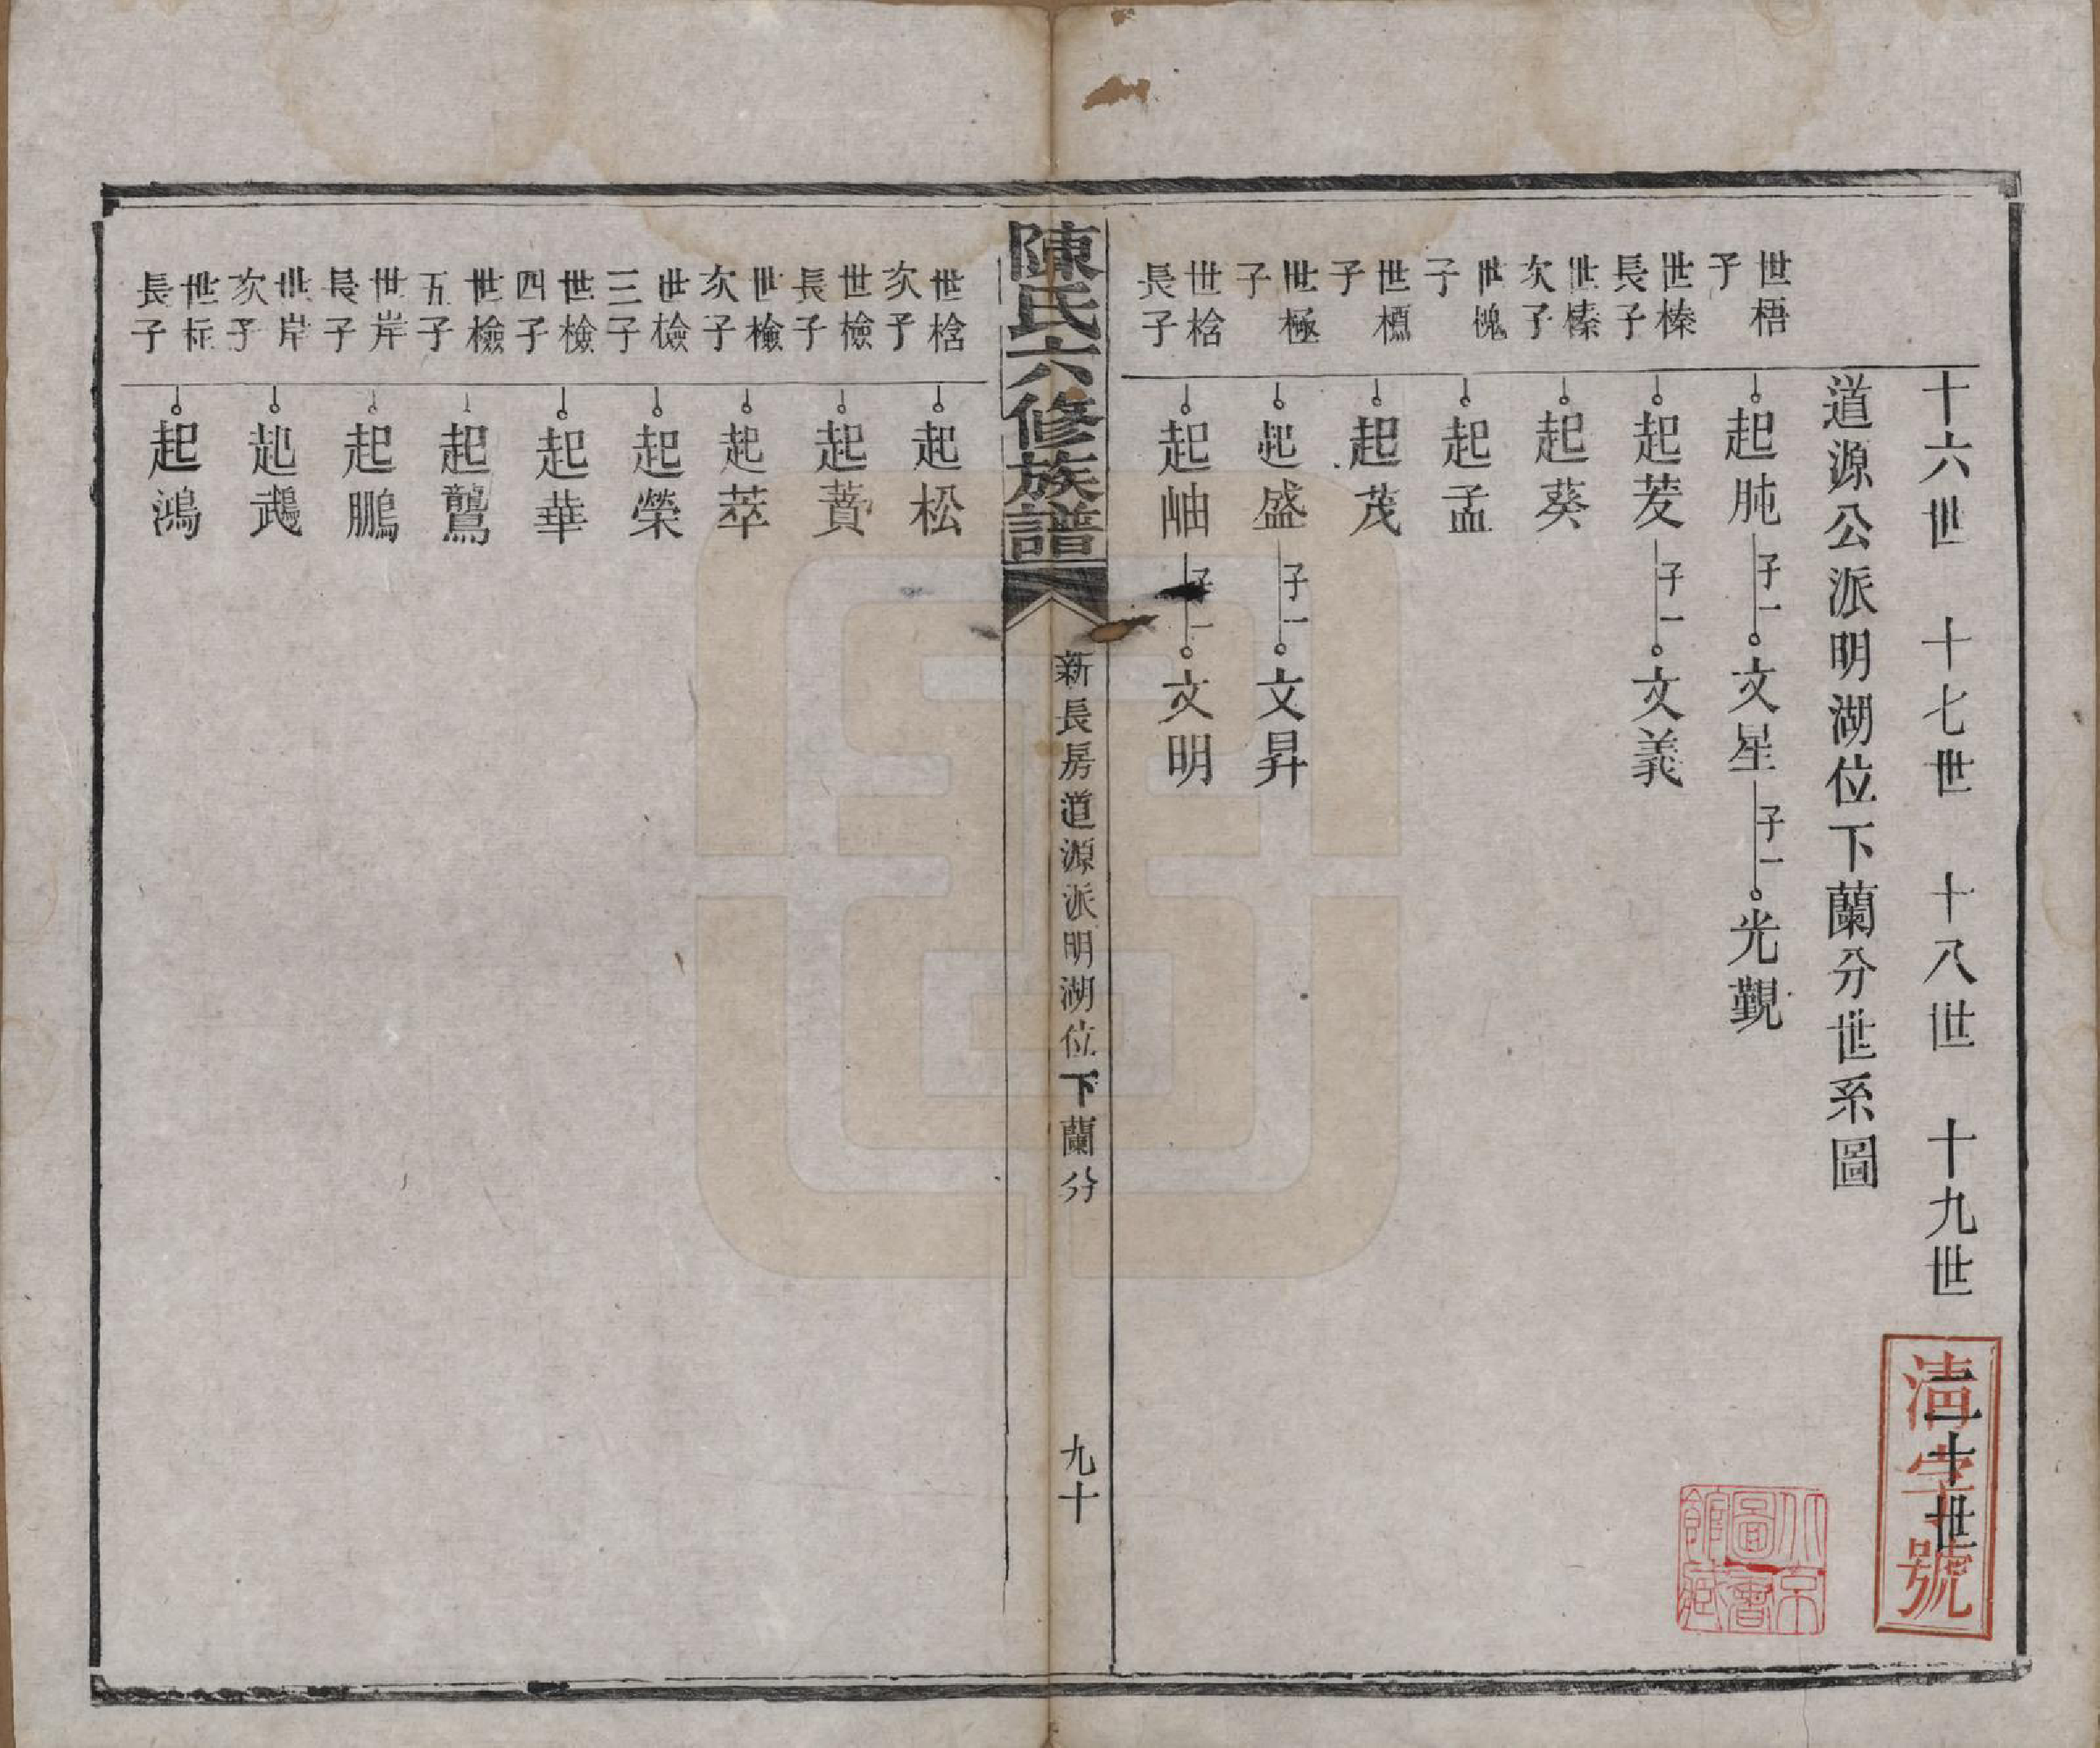 十六世 十七世 十八世 十九世 二十世
道源公派明湖位下蘭分世系圖
世梧子 起肫 子一 文星 子一 光觀
世榛長子 起茇 子一 文義
世榛次子 起葵
世槐子 起孟
世檟子 起茂
世極子 起盛 子一 文昇
世桰長子 起岫 子一 文明
陳氏六修族譜
新長房道源派明湖位下蘭分
九十
世桰次子 起松
世檢長子 起蕡
世檢次子 起萃
世檢三子 起榮
世檢四子 起華
世檢五子 起鸞
世岸長子 起鵬
世岸次子 起鵡
世标長子 起鴻
清字號
北京圖書館藏